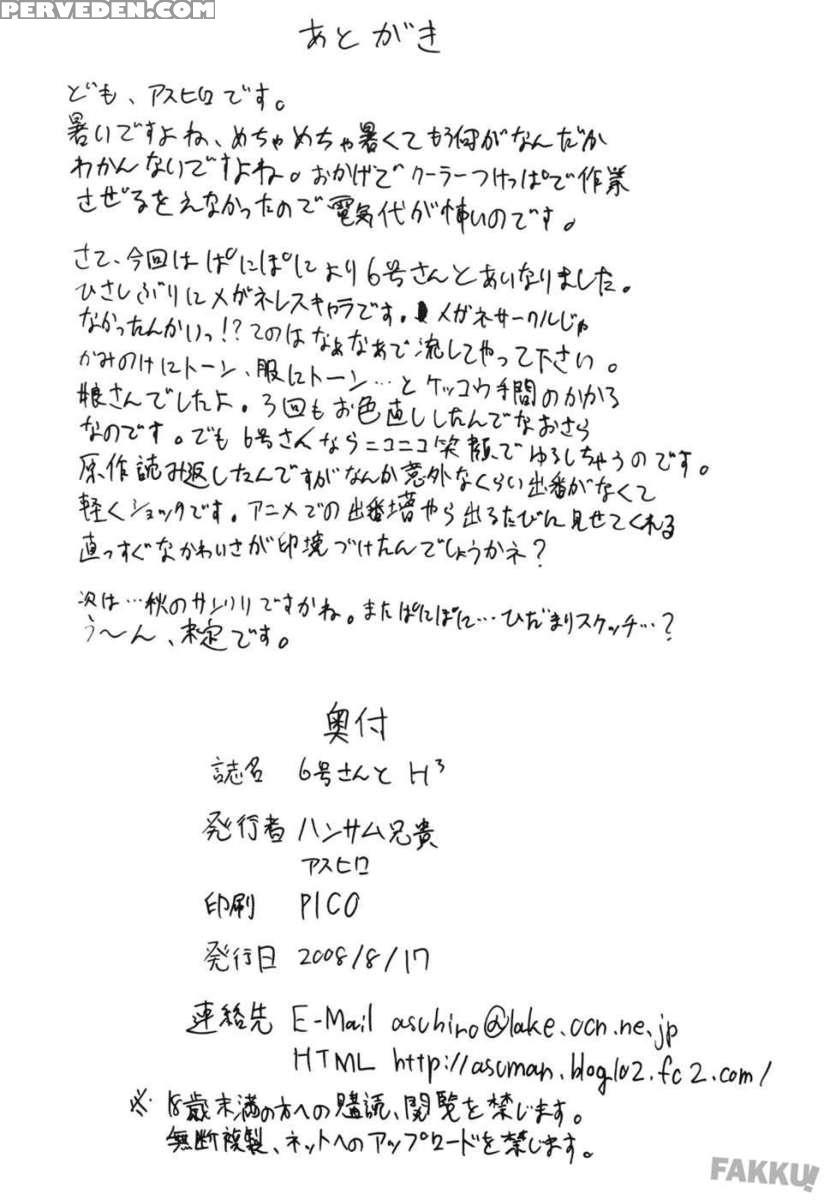 PERVEDEN.COM
あとがき
ども、アスヒロです。
暑いですよね、めちゃめちゃ暑くてもう何がなんだか
わかんないですよね。おかげでクーラーつけっぱで作業
させざるをえなかったので電気代が怖いのです。
さて、今回はぱにぽにより6号さんとあいなりました。
ひさしぶりにメガネレスキャラです。メガネサークルじゃ
なかったんかいっ!?てのはなぁなあで流してやって下さい。
かみのけにトーン、服にトーン…とケッコウ手間のかかる
娘さんでしたよ。3回もお色直ししたんでなおさら
なのです。でも6号さんならニコニコ笑顔でゆるしちゃうのです。
原作読み返したんですがなんか意外なくらい出番がなくて
軽くショックです。アニメでの出番増やら出るたびに見せてくれる
直っすぐなかわいさが印境づけたんでしょうかネ?
次は…秋のサンクリですかね。またぱにぽに…ひだまりスケッチ…?
う〜ん、未定です。
奥付
誌名 6号さんと H³
発行者 ハンサム兄貴
アスヒロ
印刷 PICO
発行日 2008/8/17
連絡先 E-Mail asuhiro@lake.ocn.ne.jp
HTML http://asuman.blog102.fc2.com/
※ 18歳未満の方への購読、閲覧を禁じます。
無断複製、ネットへのアップロードを禁じます。
FAKKU!